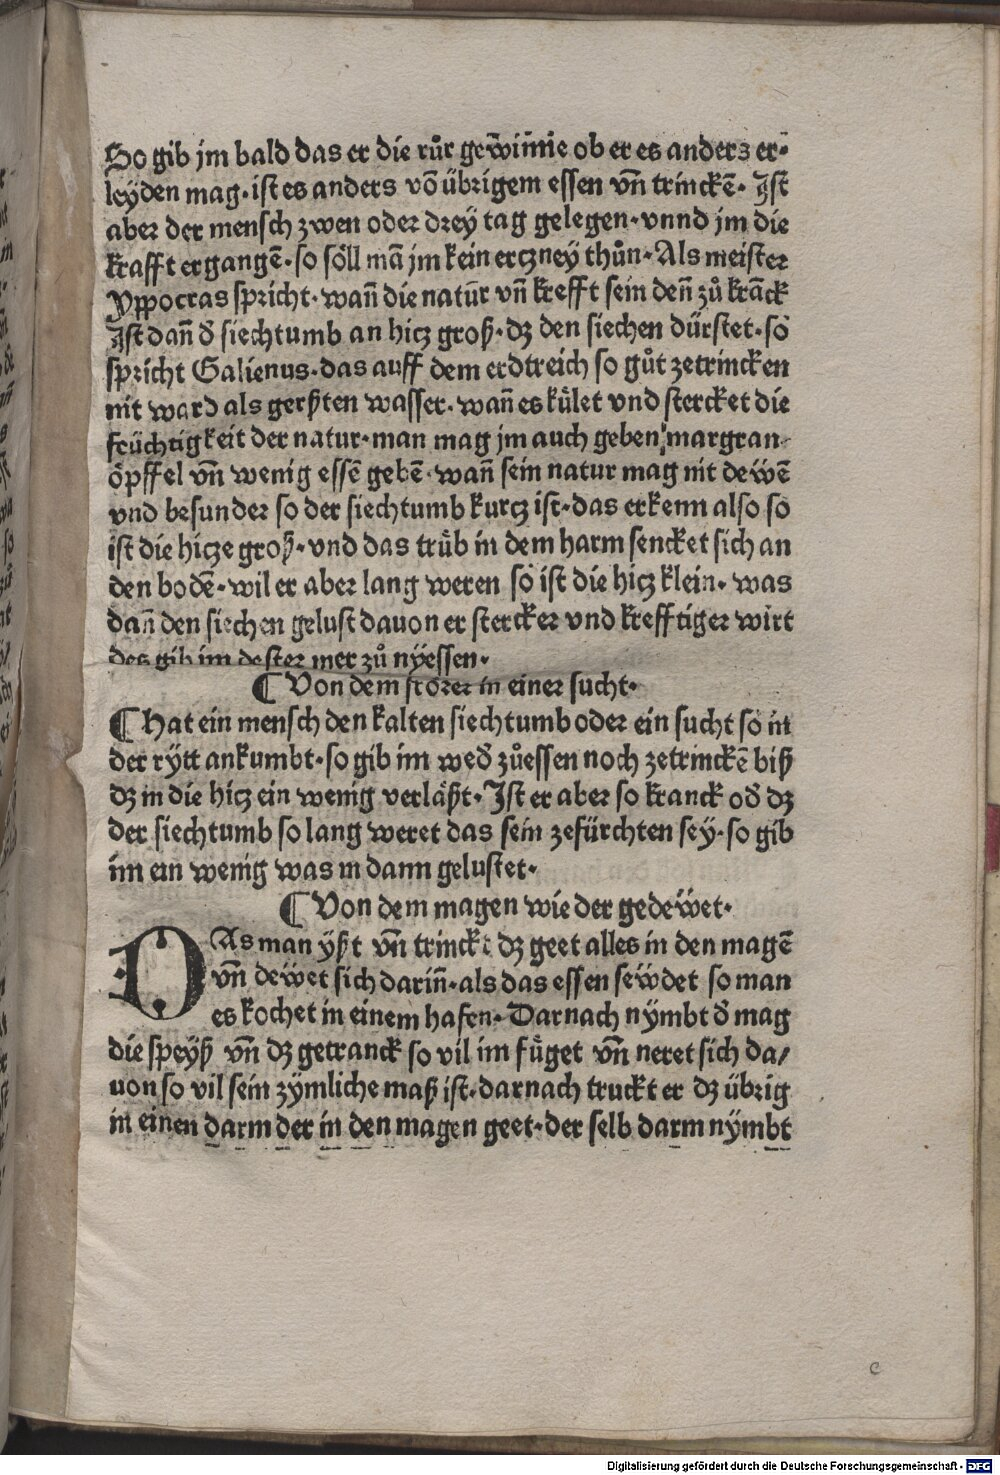 So gib jm bald das er die růr gewin̄ne ob er es anders er-
leyden mag. ist es anders vō übrigem essen vn̄ trinckē. Jst
aber der mensch zwen oder drey tag gelegen. vnnd jm die
krafft ergangē. so söll mā jm kein erczney thůn. Als meister
Yppocras spricht. wan̄ die natur vn̄ krefft sein den̄ zů kranck
Jst dan̄ d̄ siechtumb an hicz groß. dz den siechen dürstet. so
spricht Galienus. das auff dem erdtreich so gůt zetrincken
nit ward als gerßten wasser. wan̄ es kůlet vnd stercket die
feüchtigkeit der natur. man mag jm auch geben margran-
öpffel vn̄ wenig essē gebē. wan̄ sein natur mag nit dewē
vnd besunder so der siechtumb kurcz ist. das erkenn also so
ist die hicze groß. vnd das trůb in dem harm sencket sich an
den bodē. wil er aber lang weren so ist die hicz klein. was
dan̄ den siechen gelust dauon er stercker vnd krefftiger wirt
des gib im dester mer zů nyessen.
¶ Von dem frörer in einer sucht.
¶ Hat ein mensch den kalten siechtumb oder ein sucht so in
der rytt ankumbt. so gib im wed̄ zůessen noch zetrinckē biß
dz in die hicz ein wenig verläßt. Jst er aber so kranck od̄ dz
der siechtumb so lang weret das sein zefürchten sey. so gib
im ein wenig was in dann gelustet.
¶ Von dem magen wie der gedewet.
DAs man yßt vn̄ trinckt dz geet alles in den magē
vn̄ dewet sich darin̄. als das essen sewdet so man
es kochet in einem hafen. Darnach nymbt d̄ mag
die speyß vn̄ dz getranck so vil im fůget vn̄ neret sich da/
uon so vil sein zymliche maß ist. darnach truckt er dz übrig
in einen darm der in den magen geet. der selb darm nymbt
c
Digitalisierung gefördert durch die Deutsche Forschungsgemeinschaft - DFG